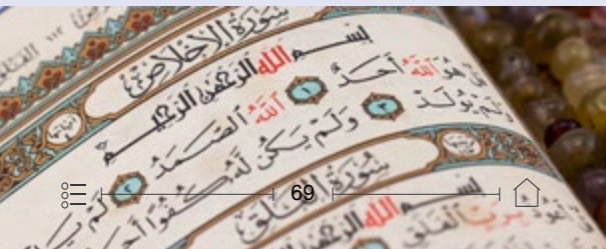 ١١٢
سُورَةُ الإِخْلَاصِ
بِسْمِ اللَّهِ الرَّحْمَٰنِ الرَّحِيمِ
هُوَ ٱللَّهُ أَحَدٌ ١ ٱللَّهُ ٱلصَّمَدُ ٢ لَمْ
وَلَمْ يُولَدْ ٣ وَلَمْ يَكُن لَّهُ كُفُوًا
سُورَةُ الفَلَقِ
بِسْمِ اللَّهِ الرَّحْمَٰنِ
أَعُوذُ بِرَبِّ ٱلْفَلَقِ
69